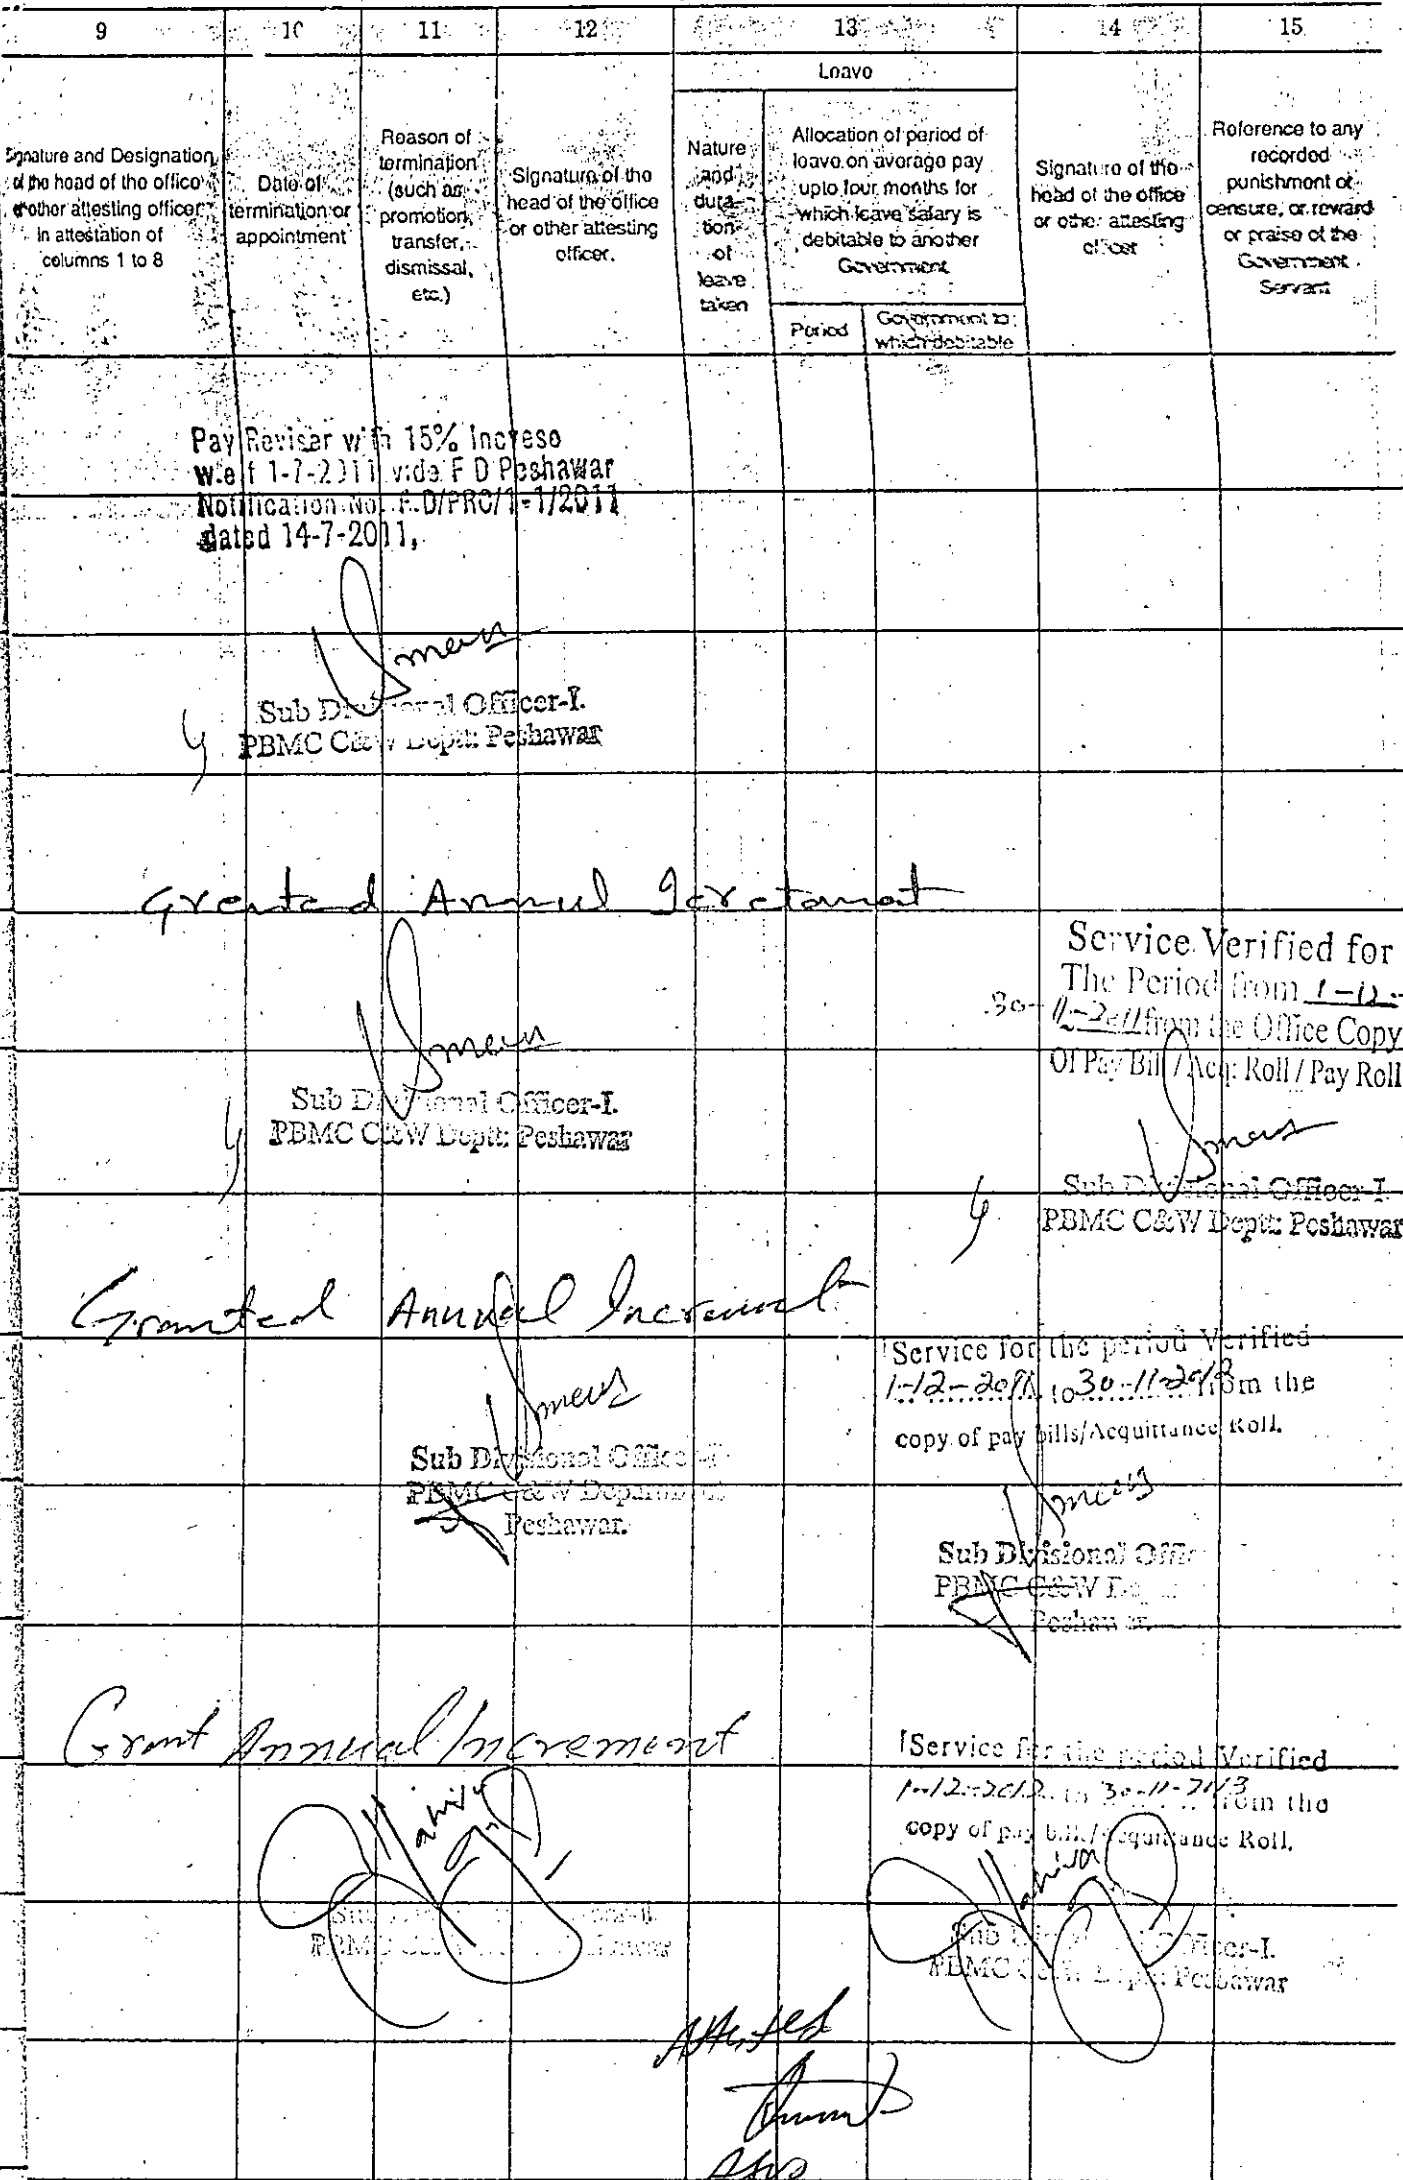 9 10 11 12 13 14 15
Leave
Signature and Designation
of the head of the office
or other attesting officer
in attestation of
columns 1 to 8
Date of
termination or
appointment
Reason of
termination
(such as
promotion,
transfer,
dismissal,
etc.)
Signature of the
head of the office
or other attesting
officer.
Nature
and
dura-
tion
of
leave
taken
Allocation of period of
leave on average pay
upto four months for
which leave salary is
debitable to another
Government
Period
Government to
which debitable
Signature of the
head of the office
or other attesting
officer
Reference to any
recorded
punishment or
censure, or reward
or praise of the
Government
Servant
Pay Reviser with 15% Increse
w.e.f 1-7-2011 vide F D Peshawar
Notification No. F.D/PRC/1-1/2011
dated 14-7-2011,
Sub Divisional Officer-I.
PBMC C&W Deptt: Peshawar
Annual
Service Verified for
The Period from 1-12-
30-11-2011 from the Office Copy
Of Pay Bill / Acq: Roll / Pay Roll
Sub Divisional Officer-I.
PBMC C&W Deptt: Peshawar
Sub Divisional Officer-I
PBMC C&W Deptt: Peshawar
Granted Annual Increment
Service for the period Verified
1-12-2011 to 30-11-2012 from the
copy of pay bills/Acquittance Roll.
Sub Divisional Office
PBMC C&W Department
Peshawar.
Sub Divisional Offic
PBMC C&W De
Peshawar.
Grant Annual Increment
Service for the period Verified
1-12-2012 to 30-11-2013 from the
copy of pay bill/Acquittance Roll.
PBMC
Sub Officer-I.
PBMC C&W Deptt: Peshawar
Attested